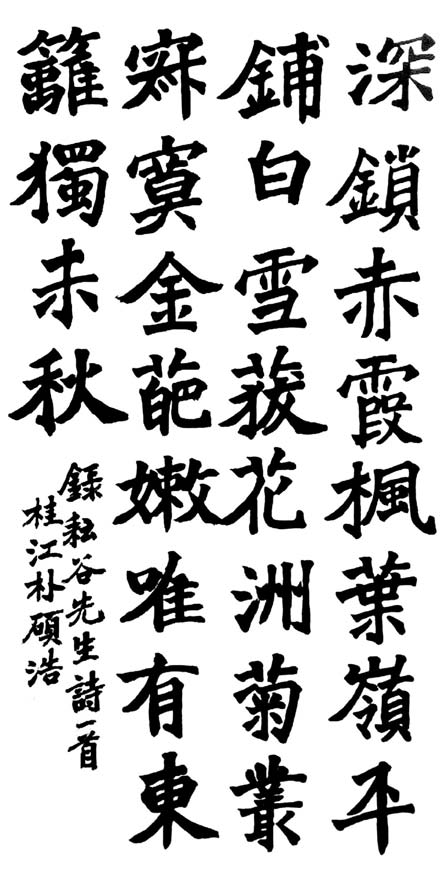 深鎖赤霞楓葉嶺平
鋪白雪葭花洲菊叢
寂寞金葩嫩唯有東
籬獨未秋
錄耘谷先生詩一首
桂江朴碩浩